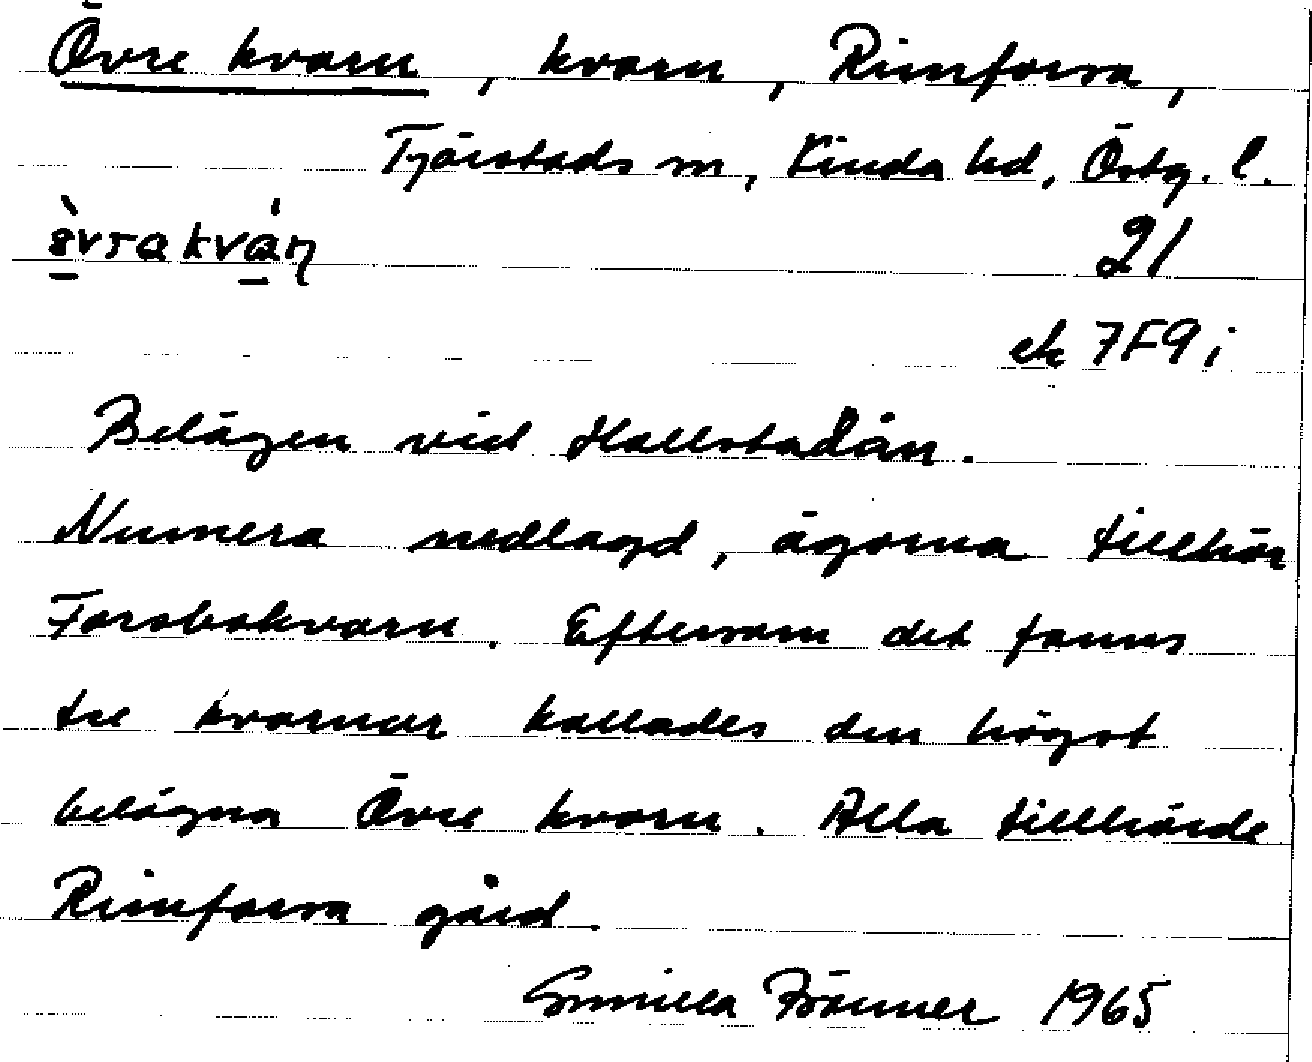 Övre kvarn, kvarn, Rimforsa,
Tjärstads sn, Kinda hd, Östg. l.
21
ek 7F9i
Belägen vid Hallstadån.
Numera nedlagd, ägorna tillhör
Forsbokvarn. Eftersom det fanns
tre kvarnar kallades den högst
belägna Övre kvarn. Alla tillhörde
Rimforsa gård.
Gunilla 1965